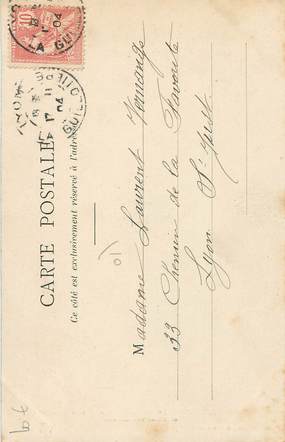 CARTE POSTALE
Ce côté est exclusivement réservé à l'adresse
10
04
LA GUI
GUILLOTIERE
04
Madame Laurent
33 Chemin de la Favorite
Lyon St Just
10